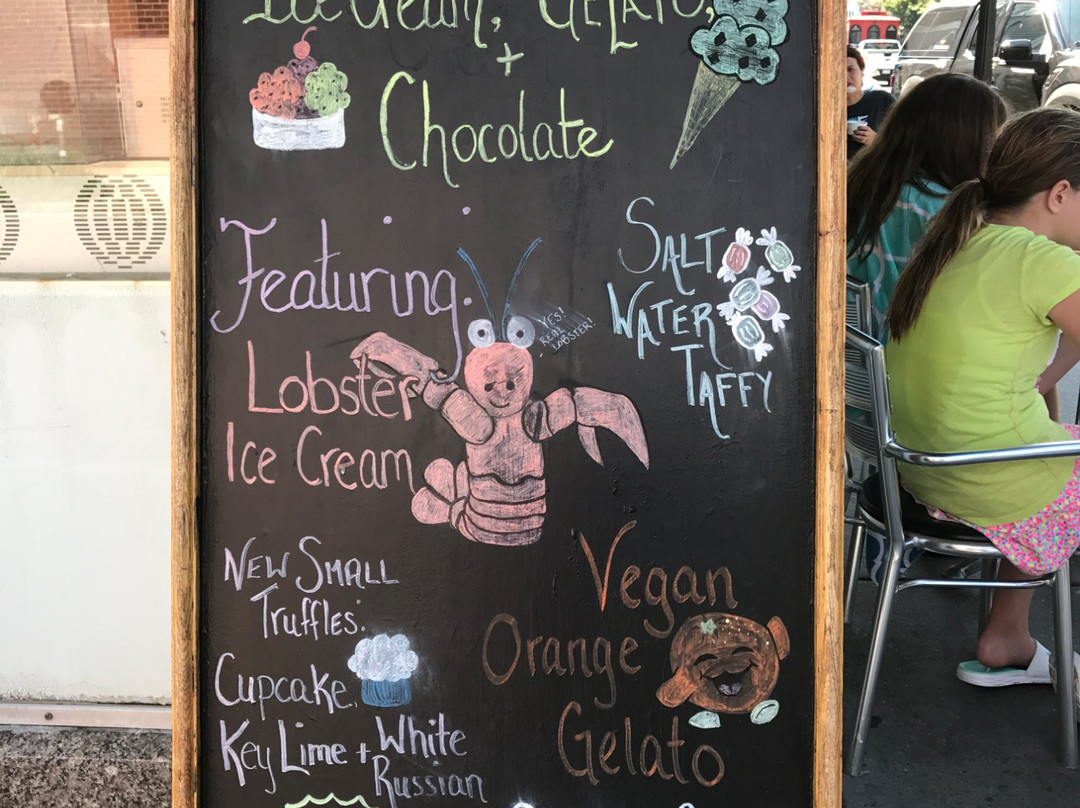 Ice Cream, Gelato,
+
Chocolate
Featuring:
Lobster
Ice Cream
YES!
REAL
LOBSTER!
SALT
WATER
TAFFY
New Small
Truffles:
Cupcake,
Key Lime + White
Russian
Vegan
Orange
Gelato